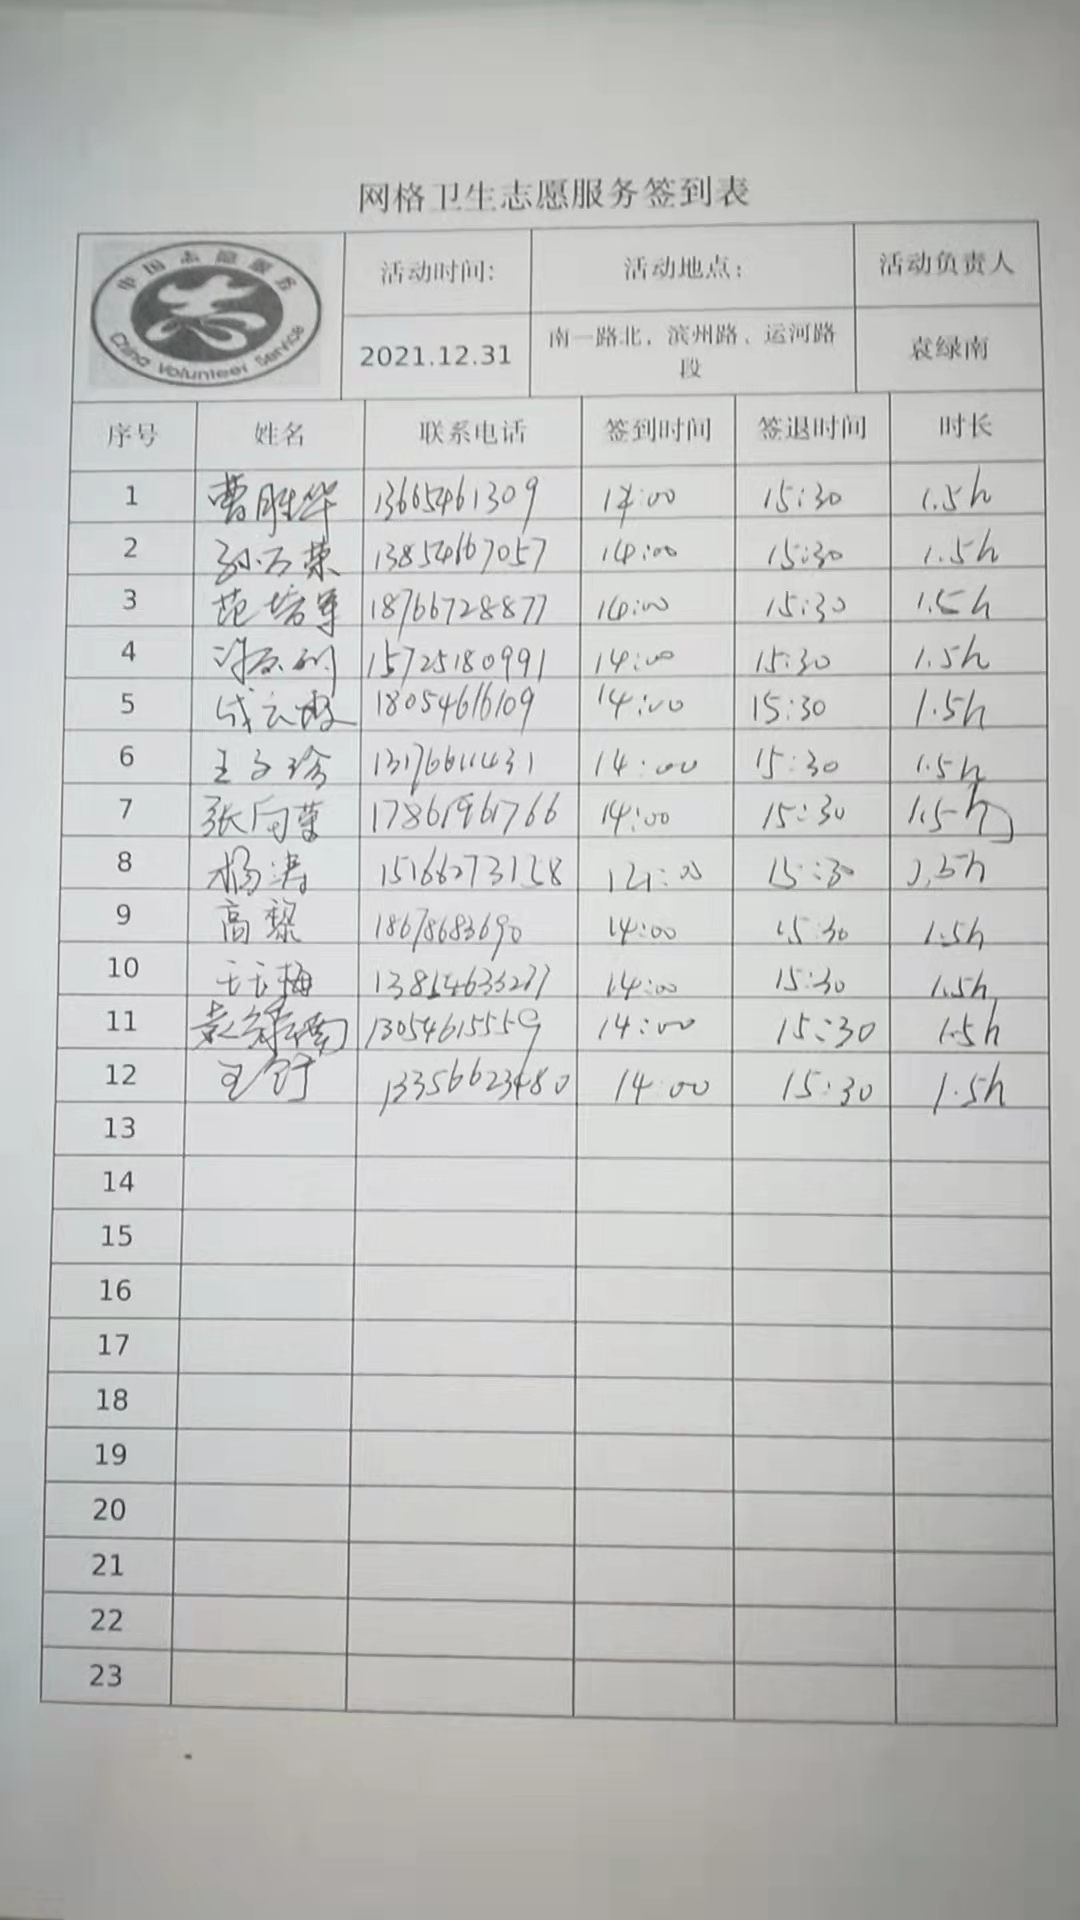 网格卫生志愿服务签到表
中国志愿服务
China Volunteer Service
活动时间: 活动地点: 活动负责人
2021.12.31 南一路北，滨州路、运河路段 袁绿南
序号 姓名 联系电话 签到时间 签退时间 时长
1 曹胜华 13605461309 14:00 15:30 1.5h
2 孙万荣 13854667057 14:00 15:30 1.5h
3 范培军 18766728877 14:00 15:30 1.5h
4 15725180991 14:00 15:30 1.5h
5 18054616109 14:00 15:30 1.5h
6 王文珍 13176611431 14:00 15:30 1.5h
7 张向荣 17861961766 14:00 15:30 1.5h
8 杨涛 15166273158 14:00 15:30 1.5h
9 高黎 18678683690 14:00 15:30 1.5h
10 14:00 15:30 1.5h
11 袁绿南 13054615559 14:00 15:30 1.5h
12 13356623480 14:00 15:30 1.5h
13
14
15
16
17
18
19
20
21
22
23